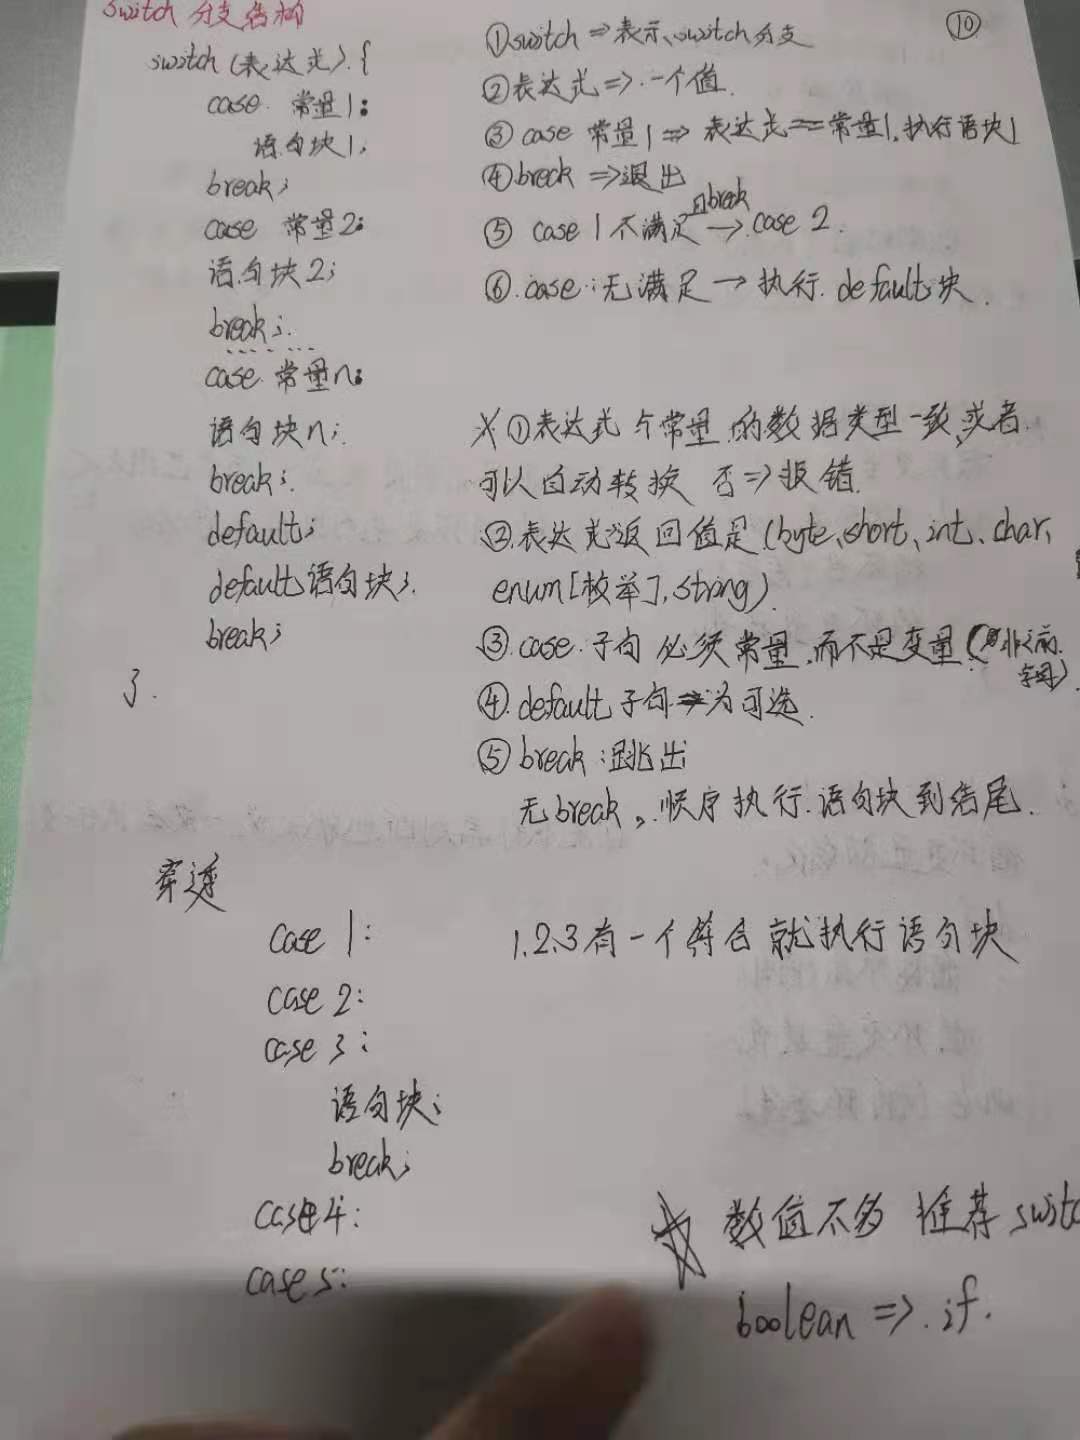 switch 分支结构
⑩
switch (表达式) {
case 常量1:
语句块1;
break;
case 常量2:
语句块2;
break;
......
case 常量n:
语句块n;
break;
default;
default语句块;
break;
}.
①switch ⇒表示、switch分支
②表达式 ⇒ 一个值.
③ case 常量1 ⇒ 表达式==常量1,执行语块1
④break ⇒退出
且break
⑤ case 1不满足 → case 2.
⑥.case:无满足 → 执行.default块.
①表达式 与常量的数据类型一致,或者
可以自动转换 否⇒报错.
②.表达式返回值是(byte、short、int、char,
enum[枚举],string)
③.case.子句 必须常量,而不是变量
④.default子句 为可选.
⑤break:跳出
无break,顺序执行.语句块到结尾.
穿透
case 1:
case 2:
case 3:
语句块;
break;
case4:
case5:
1.2、3有一个符合就执行语句块
☆ 数值不多 推荐 switc
boolean ⇒.if.